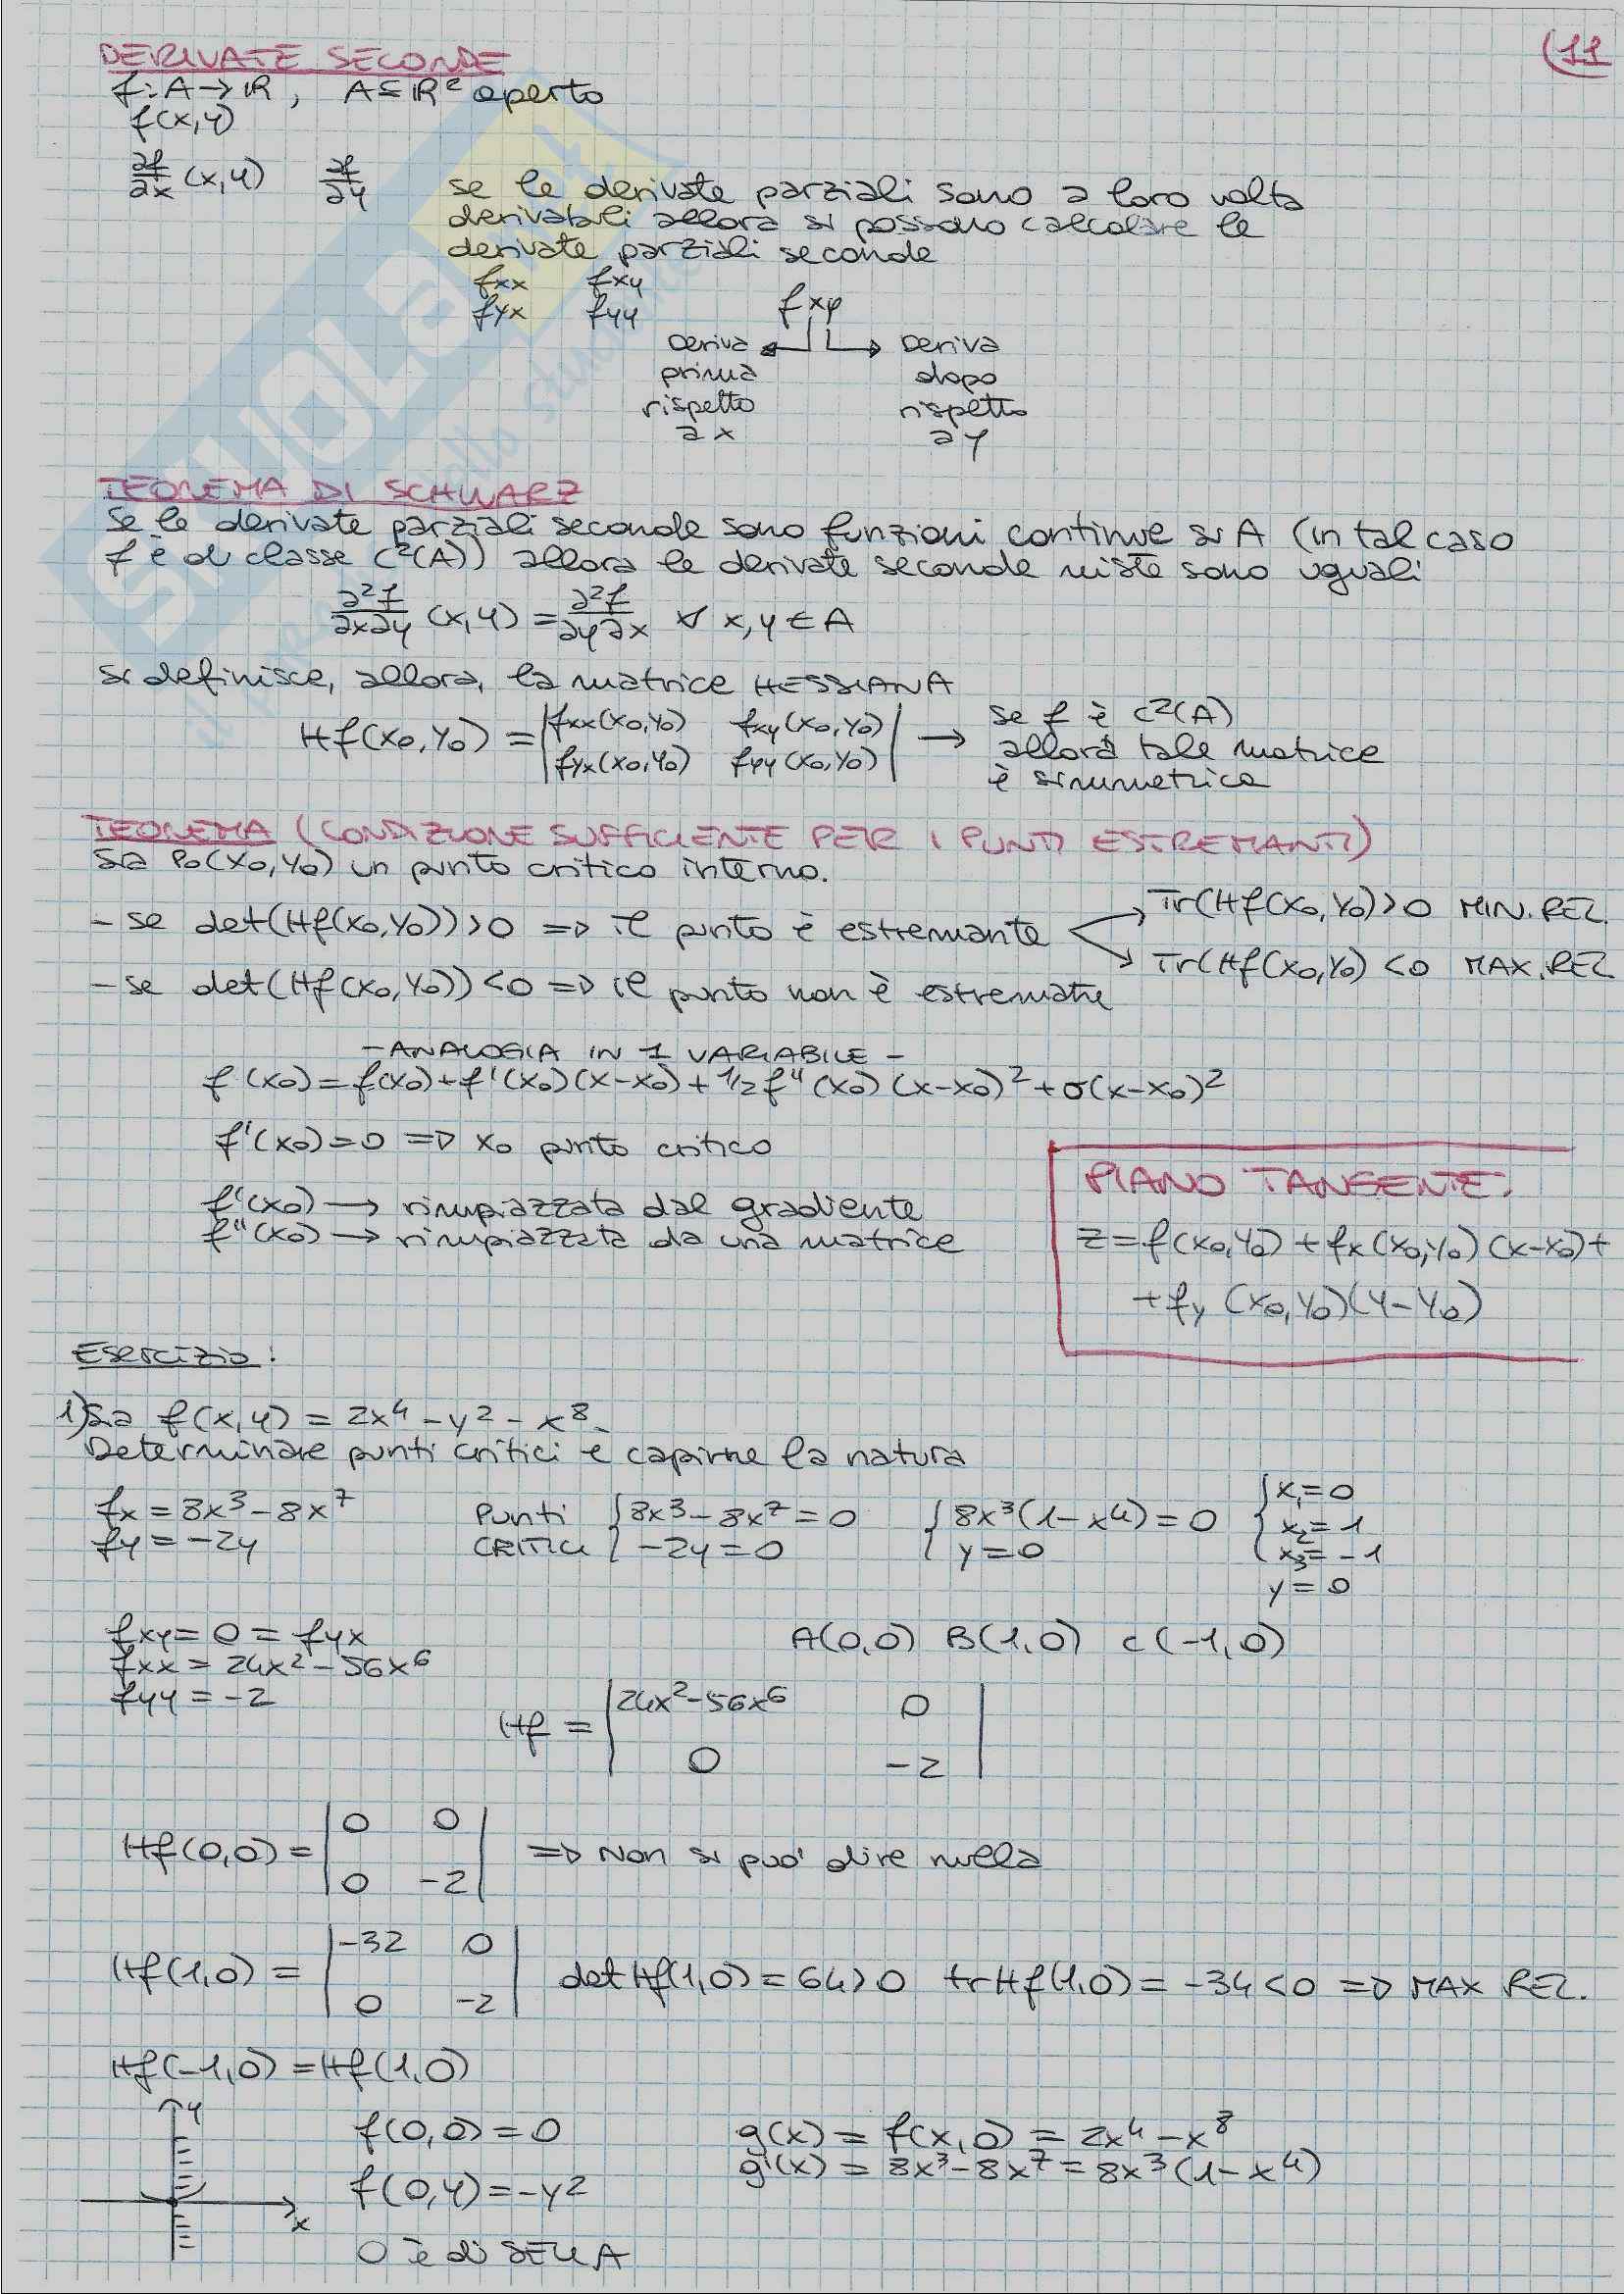 (11
DERIVATE SECONDE
f: A → ℝ, A ⊆ ℝ² aperto
f(x,y)
∂f/∂x (x,y) ∂f/∂y se le derivate parziali sono a loro volta
derivabili allora si possono calcolare le
derivate parziali seconde
fxx fxy
fyx fyy
fxy
Deriva ← → Deriva
prima dopo
rispetto rispetto
a x a y
TEOREMA DI SCHWARZ
Se le derivate parziali seconde sono funzioni continue si A (in tal caso
f è di classe C²(A)) allora le derivate seconde miste sono uguali
∂²f/∂x∂y (x,y) = ∂²f/∂y∂x ∀ x,y ∈ A
si definisce, allora, la matrice HESSIANA
Hf(x₀,y₀) = |fxx(x₀,y₀) fxy(x₀,y₀)| → se f è C²(A)
|fyx(x₀,y₀) fyy(x₀,y₀)| allora tale matrice
è simmetrica
TEOREMA (CONDIZIONE SUFFICIENTE PER I PUNTI ESTREMANTI)
Sia P₀(x₀,y₀) un punto critico interno.
- se det(Hf(x₀,y₀))>0 => il punto è estremante
Tr(Hf(x₀,y₀)>0 MIN. REL.
Tr(Hf(x₀,y₀) <0 MAX. REL
- se det(Hf(x₀,y₀))<0 => il punto non è estremante
- ANALOGIA IN 1 VARIABILE -
f (x₀) = f(x₀) + f'(x₀)(x-x₀) + 1/2 f''(x₀) (x-x₀)² + σ(x-x₀)²
f'(x₀)=0 => x₀ punto critico
f'(x₀) → rimpiazzata dal gradiente
f''(x₀) → rimpiazzata da una matrice
PIANO TANGENTE:
z=f(x₀,y₀) + fx(x₀,y₀)(x-x₀)+
+fy (x₀,y₀)(y-y₀)
Esercizio:
1) Sia f(x,y) = 2x⁴ - y² - x⁸.
Determinare punti critici e capirne la natura
fx = 8x³ - 8x⁷ PUNTI { 8x³ - 8x⁷ = 0 { 8x³(1-x⁴) = 0 { x₁=0
fy = -2y CRITICI { -2y=0 { y=0 x₂=1
x₃=-1
y=0
fxy = 0 = fyx
fxx = 24x² - 56x⁶
fyy = -2
A(0,0) B(1,0) C(-1,0)
Hf = |24x²-56x⁶ 0|
|0 -2|
Hf(0,0) = |0 0| => Non si può dire nulla
|0 -2|
Hf(1,0) = |-32 0| det Hf(1,0) = 64>0 tr Hf(1,0) = -34<0 => MAX REL.
|0 -2|
Hf(-1,0) = Hf(1,0)
y
x
f(0,0) = 0
f(0,y) = -y²
O è di SELLA
g(x) = f(x,0) = 2x⁴ - x⁸
g'(x) = 8x³ - 8x⁷ = 8x³(1-x⁴)